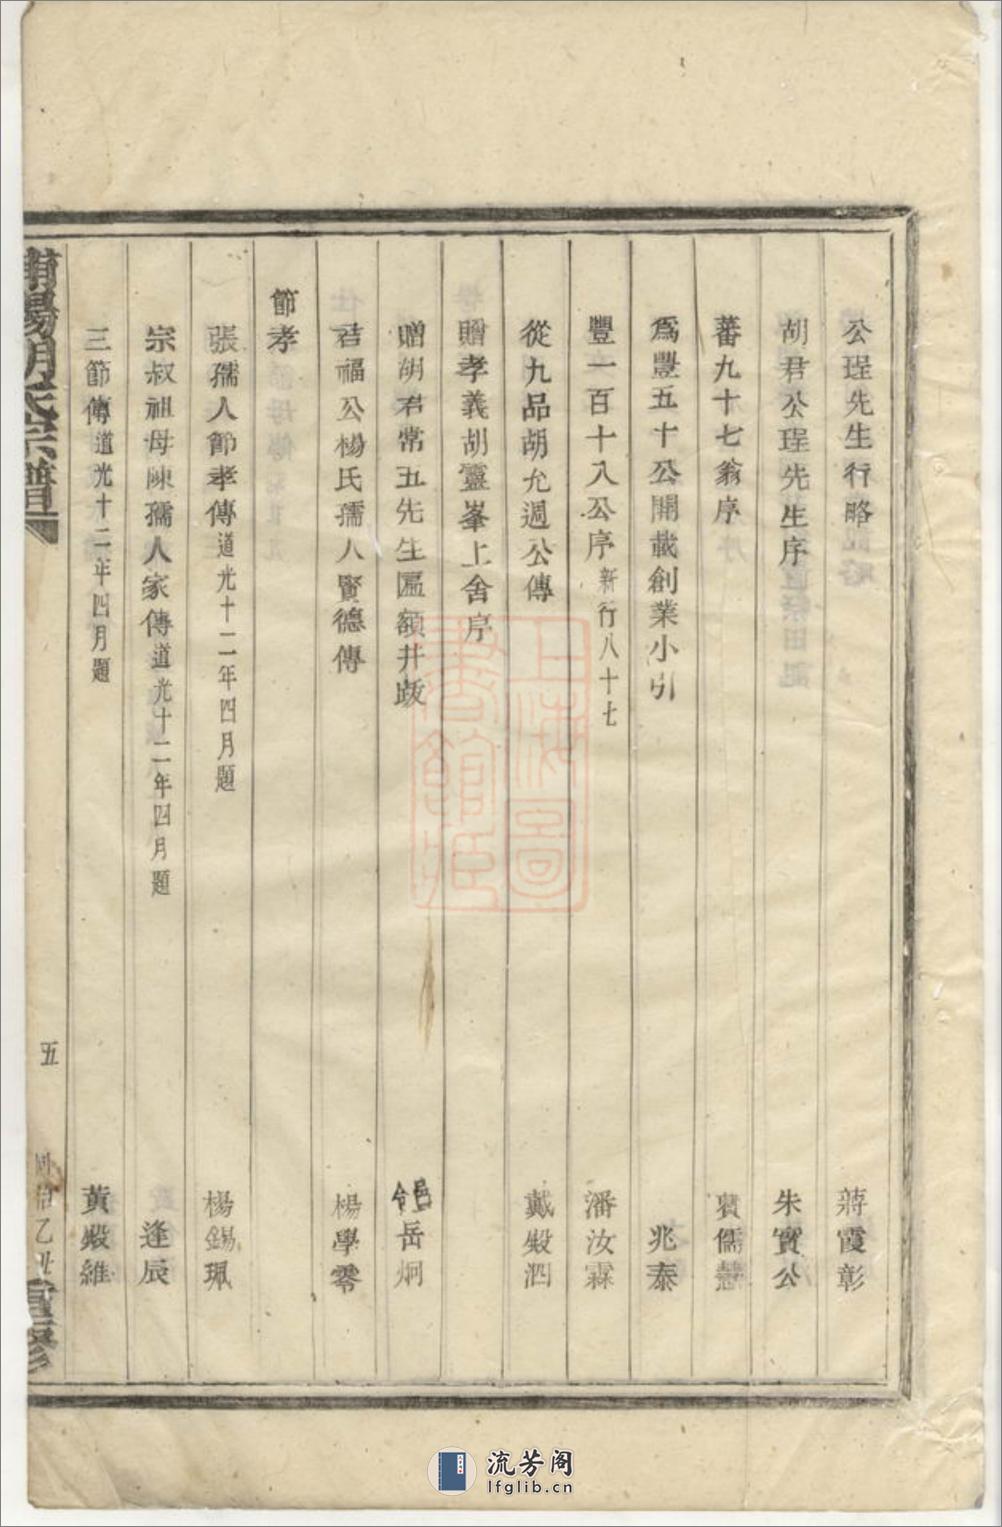 公瑆先生行略 蔣霞彰
胡君公瑆先生序 朱寶公
蕃九十七翁序 儒慧
爲豐五十公開載創業小引 兆泰
豐一百十八公序 新行八十七 潘汝霖
從九品胡允週公傳 戴殿泗
贈孝義胡靈峯上舍序
贈胡君常五先生匾額并跋 邑令岳炯
君福公楊氏孺人賢德傳 楊學零
節孝
張孺人節孝傳 道光十二年四月題 楊錫珮
宗叔祖母陳孺人家傳 道光十二年四月題 逢辰
三節傳 道光十二年四月題 黃殿維
胡氏宗譜
五
乙丑重修
上海圖書館藏
流芳阁
lfglib.cn